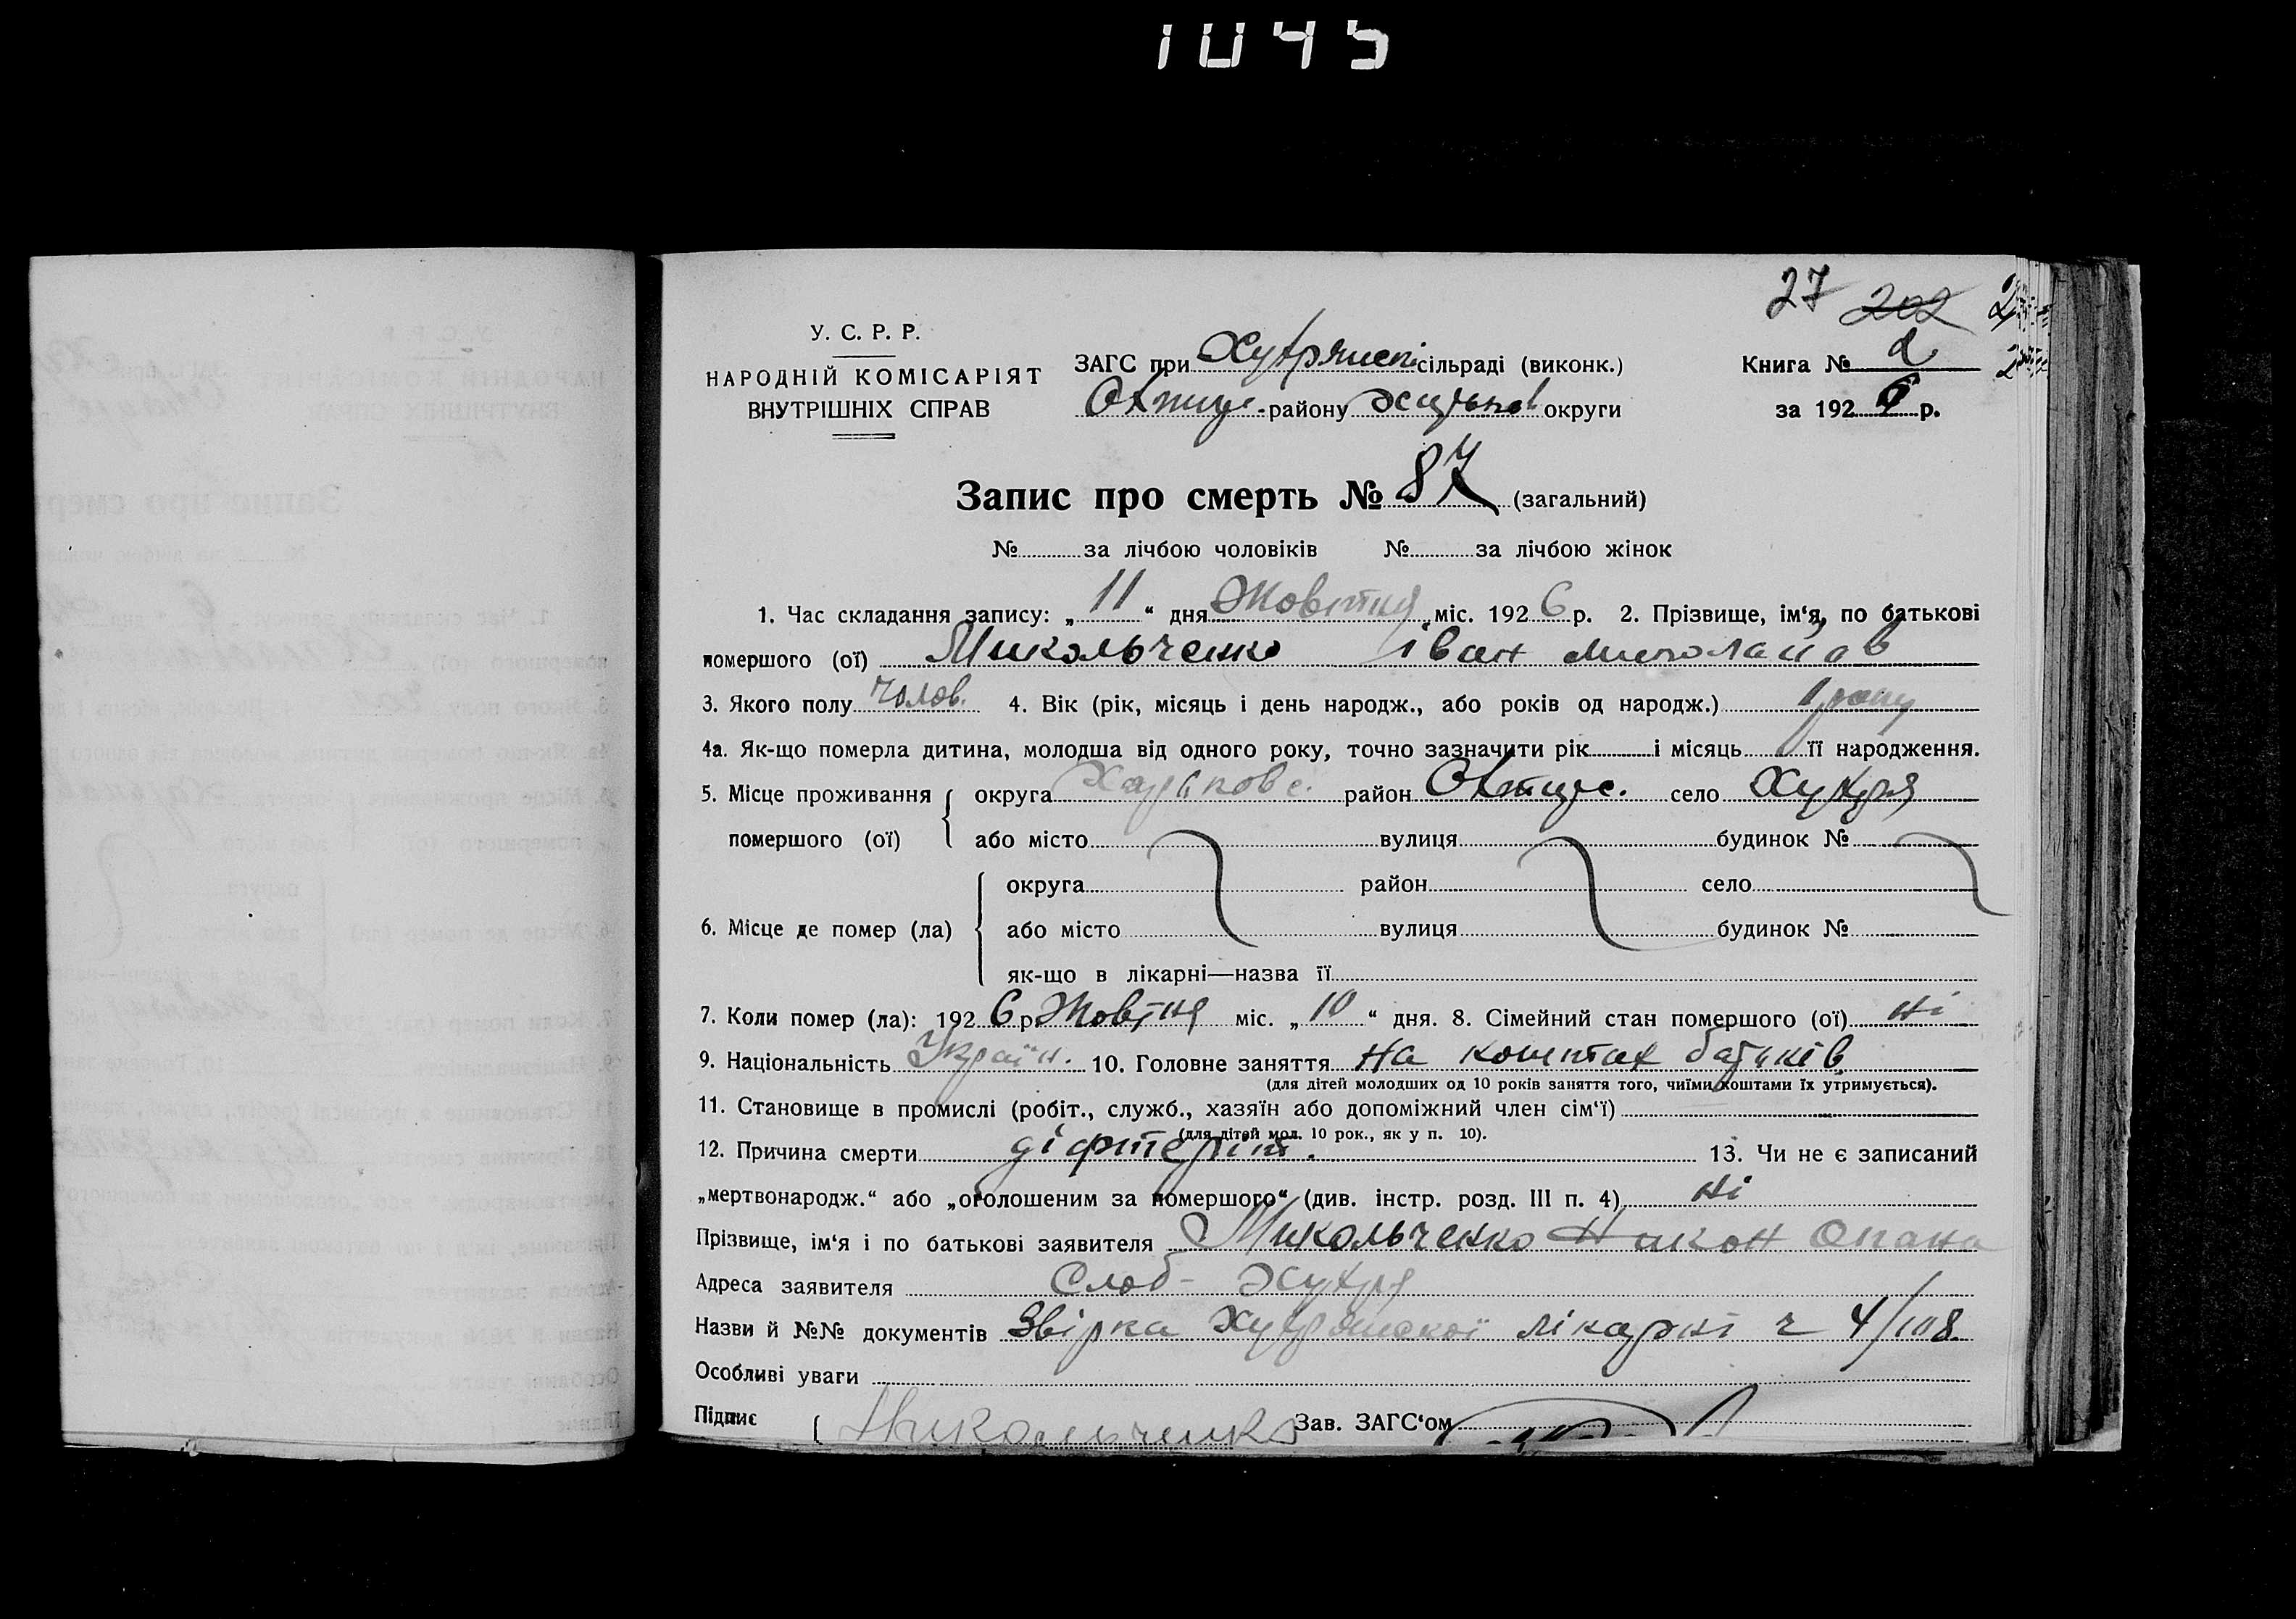 1045
27 202
У. С. Р. Р.
НАРОДНІЙ КОМІСАРІЯТ
ВНУТРІШНІХ СПРАВ
ЗАГС при Хухрянскі сільраді (виконк.)
Охтир. району Харьков округи
Книга № 2
за 1926 р.
Запис про смерть № 87 (загальний)
№ за лічбою чоловіків № за лічбою жінок
1. Час складання запису: „ 11 “ дня Жовтня міс. 1926 р. 2. Прізвище, ім‘я, по батькові
помершого (ої) Микольченко Іван Миколайов
3. Якого полу чолов. 4. Вік (рік, місяць і день народж., або років од народж.) 1 року
4а. Як-що померла дитина, молодша від одного року, точно зазначити рік і місяць її народження.
5. Місце проживання помершого (ої) округа Харькове. район Охтирс. село Хухря
або місто вулиця будинок №
6. Місце де помер (ла) округа район село
або місто вулиця будинок №
як-що в лікарні—назва її
7. Коли помер (ла): 1926 р. Жовтня міс. „ 10 “ дня. 8. Сімейний стан помершого (ої) ні
9. Національність Україн. 10. Головне заняття на коштах батьків
(для дітей молодших од 10 років заняття того, чиїми коштами їх утримується).
11. Становище в промислі (робіт., служб., хазяїн або допоміжний член сім‘ї)
(для дітей мол. 10 рок., як у п. 10).
12. Причина смерти діфтеріт. 13. Чи не є записаний
„мертвонародж.“ або „оголошеним за помершого“ (див. інстр. розд. III п. 4) ні
Прізвище, ім‘я і по батькові заявителя Микольченко Никон Опана
Адреса заявителя Слоб- Хухря
Назви й №№ документів Звірка Хухрянскої лікарні ч 4/108
Особливі уваги
Підпис ( Микольченко Зав. ЗАГС‘ом